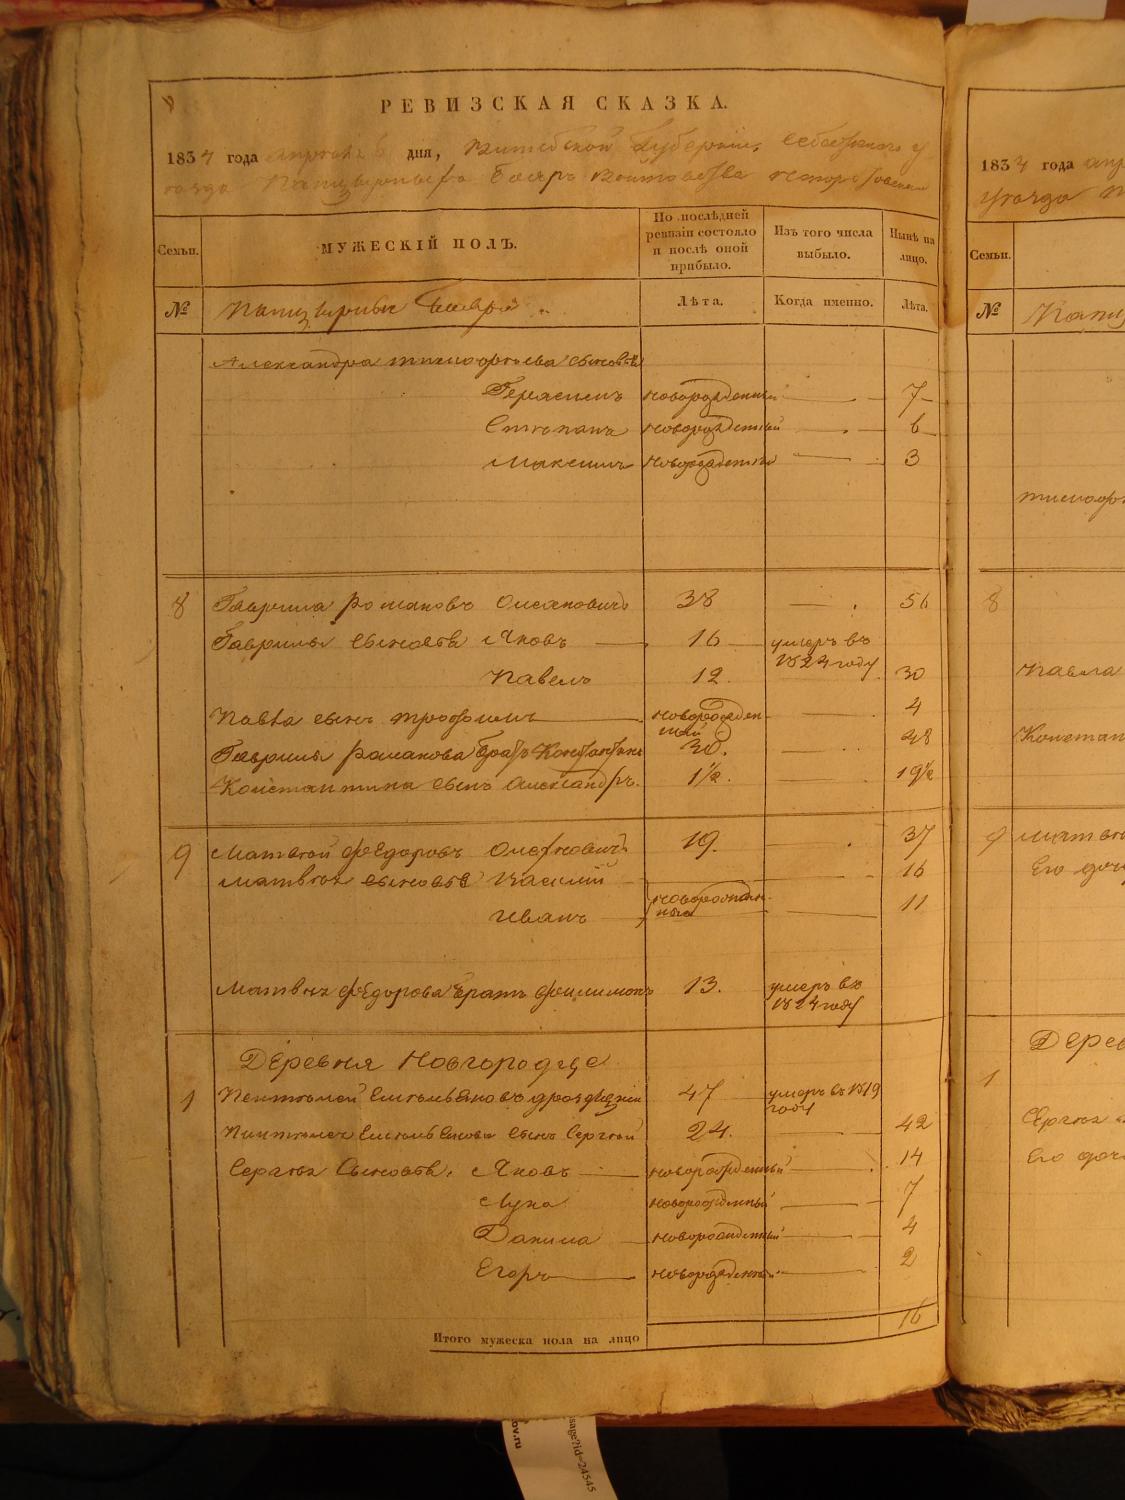 РЕВИЗСКАЯ СКАЗКА.
1834 года апреля 6 дня, Витебской Губернии, Себежского у
езда Панцырныхъ Бояръ Войтовства
Семьи. МУЖЕСКІЙ ПОЛЪ. По послѣдней ревизіи состояло и послѣ оной прибыло. Изъ того числа выбыло. Нынѣ на лицо.
№ Панцырные Бояре Лѣта. Когда именно. Лѣта.
Александра Тимофеева сыновья
Герасимъ новорожденный 7
Степанъ новорожденный 6
Максимъ новорожденный 3
8 Гаврила Романовъ 38 56
Гаврилы сыновья Яковъ 16 умеръ въ 1824 году
Павелъ 12 30
Павла сынъ Трофимъ новорожденный 4
Гаврилы Романова братъ Константинъ 30. 48
Константина сынъ Александръ. 1½. 19½
9 Матвей Федоровъ 19. 37
Матвея сыновья 16
Иванъ новорожденные 11
Матвея Федорова братъ Филимонъ 13. умеръ въ 1824 году
Деревня Новгородце
1 Пантелей Емельяновъ 47 умеръ въ 1819 году
Пантелея Емельянова сынъ Сергей 24. 42
Сергея Сыновья. Яковъ новорожденный 14
Лука новорожденный 7
Данила новорожденный 4
Егоръ новорожденный 2
Итого мужеска пола на лицо 16
1834 года
уезда
Семьи.
№
8
Павла
9
Его
1
Его